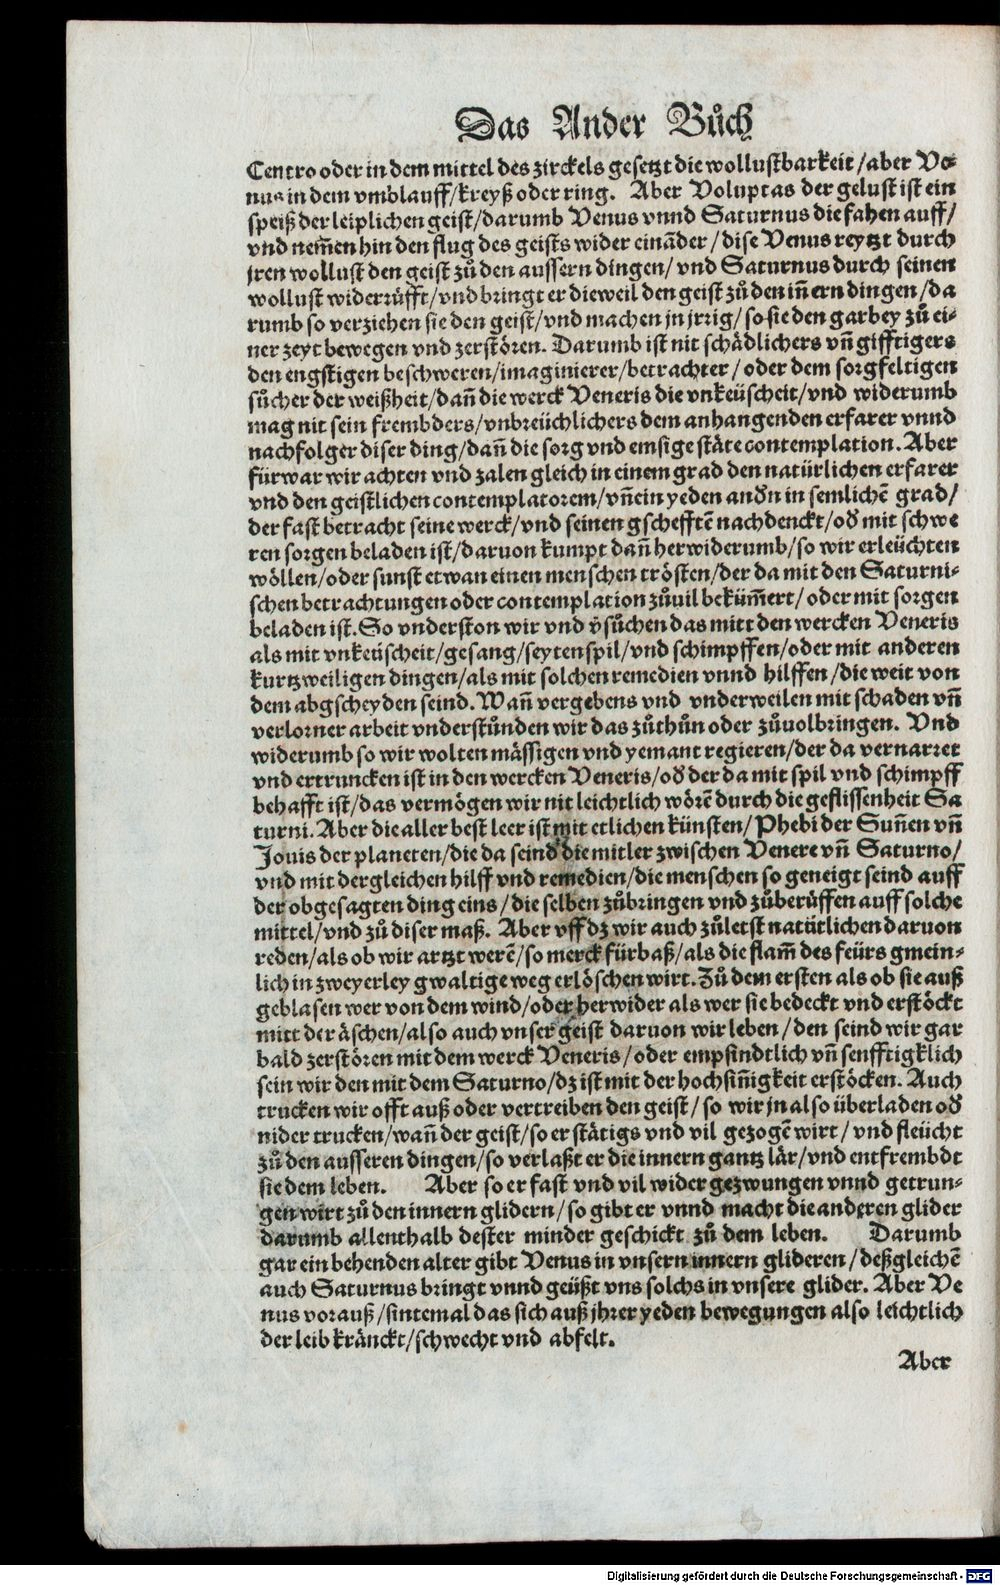 Das Ander Bůch
Centro oder in dem mittel des zirckels gesetzt die wollustbarkeit/aber Ve⸗
nus in dem vmblauff/kreyß oder ring. Aber Voluptas der gelust ist ein
speiß der leiplichen geist/darumb Venus vnnd Saturnus die fahen auff/
vnd nem̃en hin den flug des geists wider einãder/dise Venus reytzt durch
jren wollust den geist zů den aussern dingen/vnd Saturnus durch seinen
wollust widerrüfft/vnd bringt er dieweil den geist zů den iñern dingen/da
rumb so verziehen sie den geist/vnd machen jn jrrig/so sie den gar bey zů ei⸗
ner zeyt bewegen vnd zerstören. Darumb ist nit schädlichers vñ gifftigers
den engstigen beschweren/imaginierer/betrachter/oder dem sorgfeltigen
sůcher der weißheit/dañ die werck Veneris die vnkeüscheit/vnd widerumb
mag nit sein frembders/vnbreüchlichers dem anhangenden erfarer vnnd
nachfolger diser ding/dañ die sorg vnd emsige stäte contemplation. Aber
fürwar wir achten vnd zalen gleich in einem grad den natürlichen erfarer
vnd den geistlichen contemplatorem/vñ ein yeden andn in semlichẽ grad/
der fast betracht seine werck/vnd seinen gschefftẽ nachdenckt/od mit schwe
ren sorgen beladen ist/daruon kumpt dañ herwiderumb/so wir erleüchten
wöllen/oder sunst etwan einen menschen trösten/der da mit den Saturni⸗
schen betrachtungen oder contemplation zůuil beküm̃ert/oder mit sorgen
beladen ist. So vnderston wir vnd v̄sůchen das mitt den wercken Veneris
als mit vnkeüscheit/gesang/seytenspil/vnd schimpffen/oder mit anderen
kurtzweiligen dingen/als mit solchen remedien vnnd hilffen/die weit von
dem abgscheyden seind. Wañ vergebens vnd vnderweilen mit schaden vñ
verlorner arbeit vnderstůnden wir das zůthůn oder zůuolbringen. Vnd
widerumb so wir wolten mässigen vnd yemant regieren/der da vernarret
vnd ertruncken ist in den wercken Veneris/od der da mit spil vnd schimpff
behafft ist/das vermögen wir nit leichtlich wörẽ durch die geflissenheit Sa
turni. Aber die aller best leer ist mit etlichen künsten/Phebi der Suñen vñ
Jouis der planeten/die da seind die mitler zwischen Venere vñ Saturno/
vnd mit dergleichen hilff vnd remedien/die menschen so geneigt seind auff
der obgesagten ding eins/die selben zůbringen vnd zůberüffen auff solche
mittel/vnd zů diser maß. Aber vff dz wir auch zůletst natürlichen daruon
reden/als ob wir artzt werẽ/so merck fürbaß/als die flam̃ des feürs gmein⸗
lich in zweyerley gwaltige weg erlöschen wirt. Zů dem ersten als ob sie auß
geblasen wer von dem wind/oder herwider als wer sie bedeckt vnd erstöckt
mitt der äschen/also auch vnser geist daruon wir leben/den seind wir gar
bald zerstören mit dem werck Veneris/oder empfindtlich vñ senfftigklich
sein wir den mit dem Saturno/dz ist mit der hochsiñigkeit erstöcken. Auch
trucken wir offt auß oder vertreiben den geist/so wir jn also überladen od
nider trucken/wañ der geist/so er stätigs vnd vil gezogẽ wirt/vnd fleücht
zů den ausseren dingen/so verlaßt er die innern gantz lär/vnd entfrembdt
sie dem leben. Aber so er fast vnd vil wider gezwungen vnnd getrun⸗
gen wirt zů den innern glidern/so gibt er vnnd macht die anderen glider
darumb allenthalb dester minder geschickt zů dem leben. Darumb
gar ein behenden alter gibt Venus in vnsern innern glideren/deßgleichẽ
auch Saturnus bringt vnnd geüßt vns solchs in vnsere glider. Aber Ve
nus vorauß/sintemal das sich auß jhrer yeden bewegungen also leichtlich
der leib kränckt/schwecht vnd abfelt.
Aber
Digitalisierung gefördert durch die Deutsche Forschungsgemeinschaft - DFG